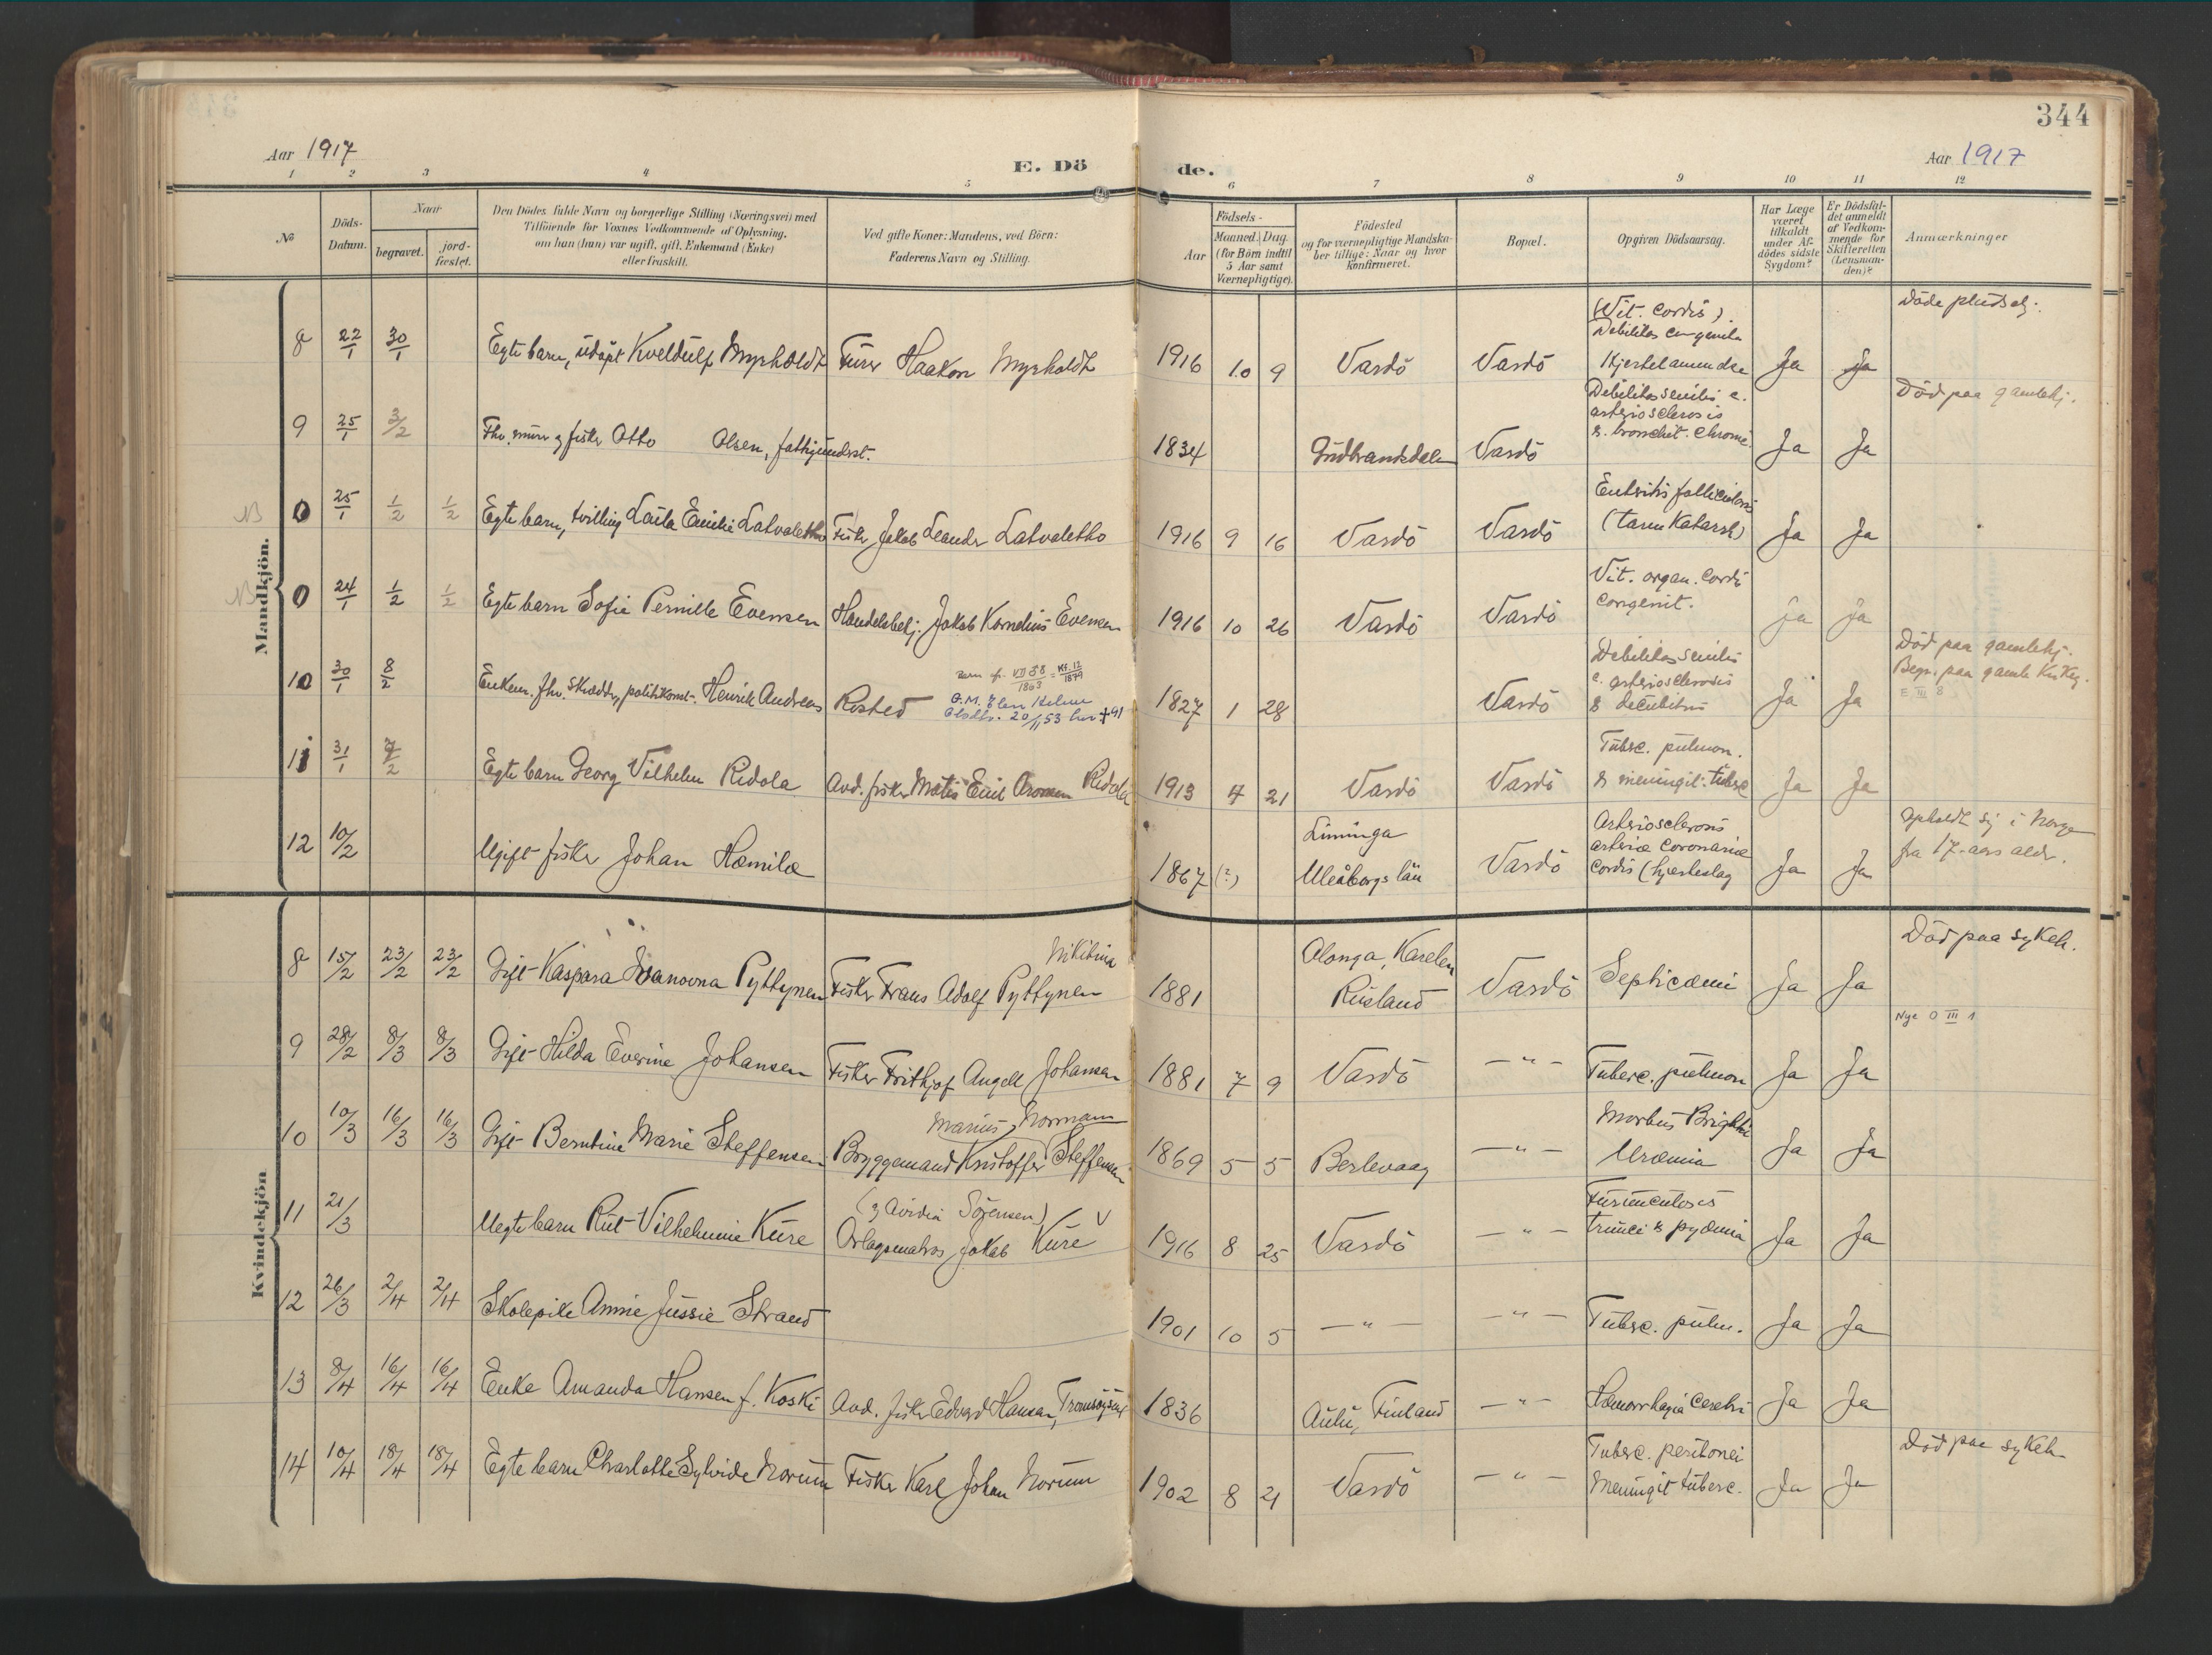 344
Aar 1917
E. Dö
de.
Aar 1917
1 2 3 4 5 6 7 8 9 10 11 12
No
Döds-Datum.
Naar
begravet.
jord-fæstet.
Den Dödes fulde Navn og borgerlige Stilling (Næringsvei) med
Tilföiende for Voxnes Vedkommende af Oplysning,
om han (hun) var ugift, gift, Enkemand (Enke)
eller fraskilt.
Ved gifte Koner: Mandens, ved Börn:
Faderens Navn og Stilling.
Födsels-
Aar
Maaned. Dag.
(for Börn indtil
5 Aar samt
Værnepligtige).
Födested
og for værnepligtige Mandska-
ber tillige: Naar og hvor
konfirmeret.
Bopæl.
Opgiven Dödsaarsag.
Har Læge
været
tilkaldt
under Af-
dödes sidste
Sygdom?
Er Dödsfal-
det anmeldt
af Vedkom-
mende for
Skifteretten
(Lensman-
den)?
Anmærkninger
Mandkjön.
8 22/1 30/1 Egte barn, udöpt Kveldulf Myrholdt Furer Haakon Myrholdt 1916 10 9 Vardö Vardö (Vit. cordis). Debilitas congenita Hjertelammelse Ja Ja Döde pludselig.
9 25/1 3/2 Fhv. murer og fisker Otto Olsen, fattigunderst. 1834 Gudbrandsdalen Vardö Debilitas senilis c. arteriosclerosis & bronchit. chronic. Ja Ja Död paa gamlehj.
NB 0 25/1 1/2 1/2 Egte barn, tvilling Laila Emilie Latvaletho Fisker Jakob Leander Latvaletho 1916 9 16 Vardö Vardö Enteritis follicularis (tarmkatarrh) Ja Ja
NB 0 24/1 1/2 1/2 Egte barn Sofie Pernille Evensen Handelsbetj. Jakob Kornelius Evensen 1916 10 26 Vardö Vardö Vit. organ. cordis congenit. Ja Ja
10 30/1 8/2 Enkem. fhv. skrædder, politikonst. Henrik Andreas Rosted 1827 1 28 Vardö Debilitas senilis c. arteriosclerosis & decubitus Ja Ja Död paa gamlehj. Begr. paa gamle Kirkeg. E III 8
G.M. Elen Helene
Olsdtr. 20/11 53 her + 91
11 31/1 7/2 Egte barn Georg Vilhelm Ridola Avd. fisker Matis Emil Aronsen Ridola 1913 4 21 Vardö Vardö Tuberc. pulmon. & meningit. tuberc Ja Ja
12 10/2 Ugift fisker Johan Hæmilæ 1867 (?) Liminga Uleåborgs län Vardö Arteriosclerosis arteriæ coronariæ cordis (hjerteslag Ja Ja Opholdt sig i Norge fra 17-aars alder.
Kvindekjön
8 15/2 23/2 23/2 Gift Kaspara Ivanovna Pyttynen Nikitina Fisker Frans Adolf Pyttynen 1881 Alonga, Karelen Rusland Vardö Septicæmi Ja Ja Död paa sykeh.
Nye O III 1
9 28/2 8/3 8/3 Gift Hilda Everine Johansen Fisker Frithjof Angell Johansen 1881 7 9 Vardö — " — Tuberc. pulmon Ja Ja
10 10/3 16/3 16/3 Gift Berntine Marie Steffensen Marius Normann Bryggemand Kristoffer Steffensen 1869 5 5 Berlevaag — " — Morbus Brightii Uræmia Ja Ja
11 21/3 Uegte barn Rut Vilhelmine Kure (g Avidia Sörensen) V Orlogsmatros Jakob Kure 1916 8 25 Vardö — " — Furunculosis trunci & pyæmia Ja Ja
12 26/3 2/4 2/4 Skolepike Annie Jussie Strand 1901 10 5 — " — — " — Tuberc. pulm. Ja Ja
13 8/4 16/4 16/4 Enke Amanda Hansen f. Koski Avd. fisker Edvard Hansen, Tromsöysund 1836 Aulu, Finland — " — Hæmorrhagia cerebri Ja Ja
14 10/4 18/4 18/4 Egte barn Charlotte Sylvide Norum Fisker Karl Johan Norum 1902 8 21 Vardö — " — Tuberc. peritonei Meningit tuberc. Ja Ja Död paa sykeh